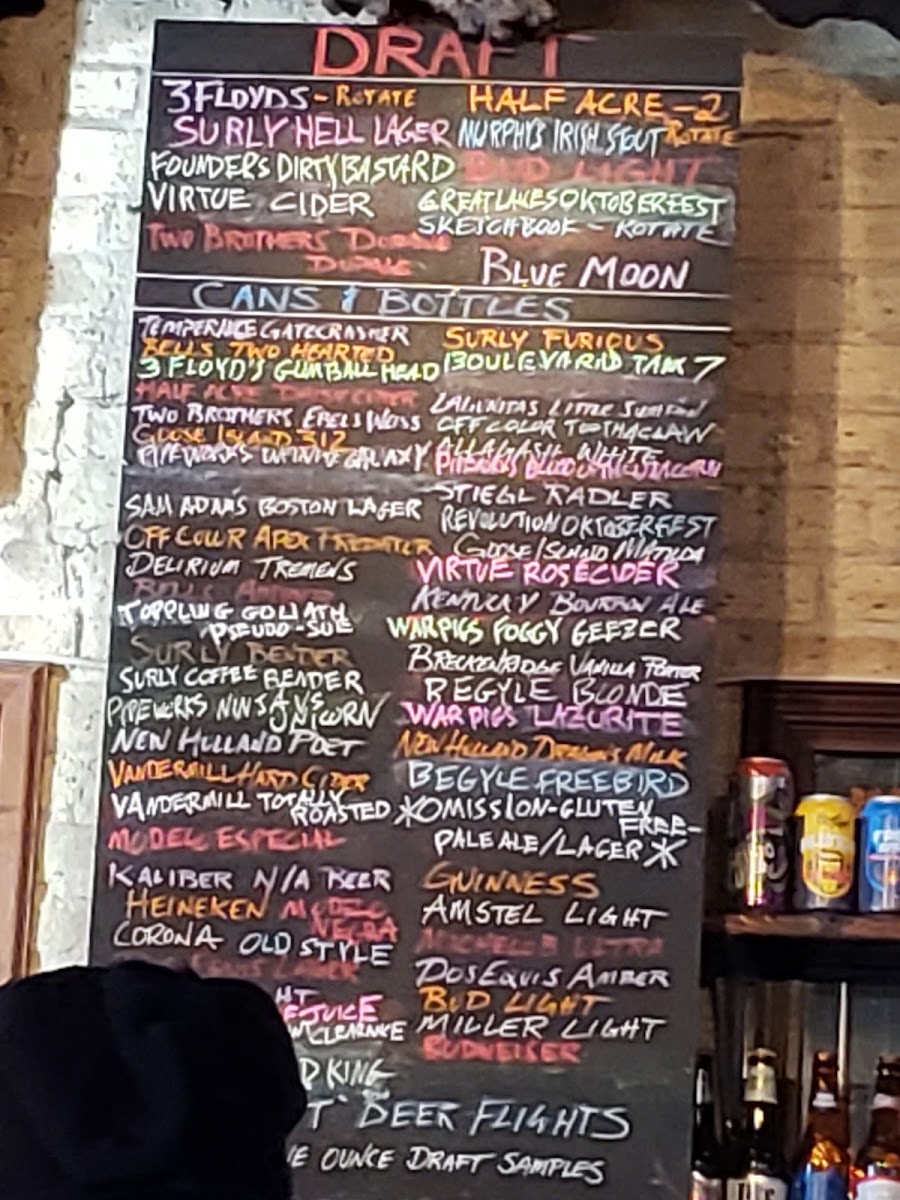 DRAFT
3 FLOYDS - ROTATE
SURLY HELL LAGER
FOUNDERS DIRTY BASTARD
VIRTUE CIDER
TWO BROTHERS
HALF ACRE - 2
ROTATE
MURPHY'S IRISH STOUT
BUD LIGHT
GREAT LAKES OKTOBERFEST
SKETCHBOOK - ROTATE
BLUE MOON
CANS & BOTTLES
TEMPERANCE GATECRASHER
BELLS TWO HEARTED
3 FLOYD'S GUMBALL HEAD
HALF ACRE DAISY CUTTER
TWO BROTHERS EBELS WEISS
GOOSE ISLAND 312
PIPEWORKS INFINITE GALAXY
SAM ADAMS BOSTON LAGER
OFF COLOR APEX PREDATOR
DELIRIUM TREMENS
BELLS AMBER
TOPPLING GOLIATH
PSEUDO-SUE
SURLY BENDER
SURLY COFFEE BENDER
PIPEWERKS NINJA VS
UNICORN
NEW HOLLAND POET
VANDERMILL HARD CIDER
VANDERMILL TOTALLY
ROASTED
MODELO ESPECIAL
KALIBER N/A BEER
HEINEKEN MODELO
NEGRA
CORONA OLD STYLE
LAGER
HT
EJUICE
CLEARANCE
D KING
SURLY FURIOUS
BOULEVARD TANK 7
LAGUNITAS LITTLE SUMPIN
OFF COLOR TOOTH & CLAW
ALLAGASH WHITE
STIEGL RADLER
REVOLUTION OKTOBERFEST
GOOSE ISLAND MATILDA
VIRTUE ROSE CIDER
KENTUCKY BOURBON ALE
WARPIGS FOGGY GEEZER
BRECKENRIDGE VANILLA PORTER
BEGYLE BLONDE
WARPIGS LAZURITE
NEW HOLLAND DRAGONS MILK
BEGYLE FREEBIRD
*OMISSION-GLUTEN
FREE-
PALE ALE/LAGER *
GUINNESS
AMSTEL LIGHT
MICHELOB ULTRA
DOS EQUIS AMBER
BUD LIGHT
MILLER LIGHT
BUDWEISER
T BEER FLIGHTS
E OUNCE DRAFT SAMPLES